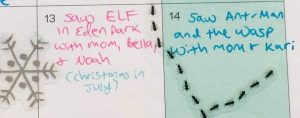 13 Saw ELF
in Eden Park
with mom, bella,
& Noah
(christmas in
July)
14 Saw Ant-Man
and the Wasp
with mom & Kari